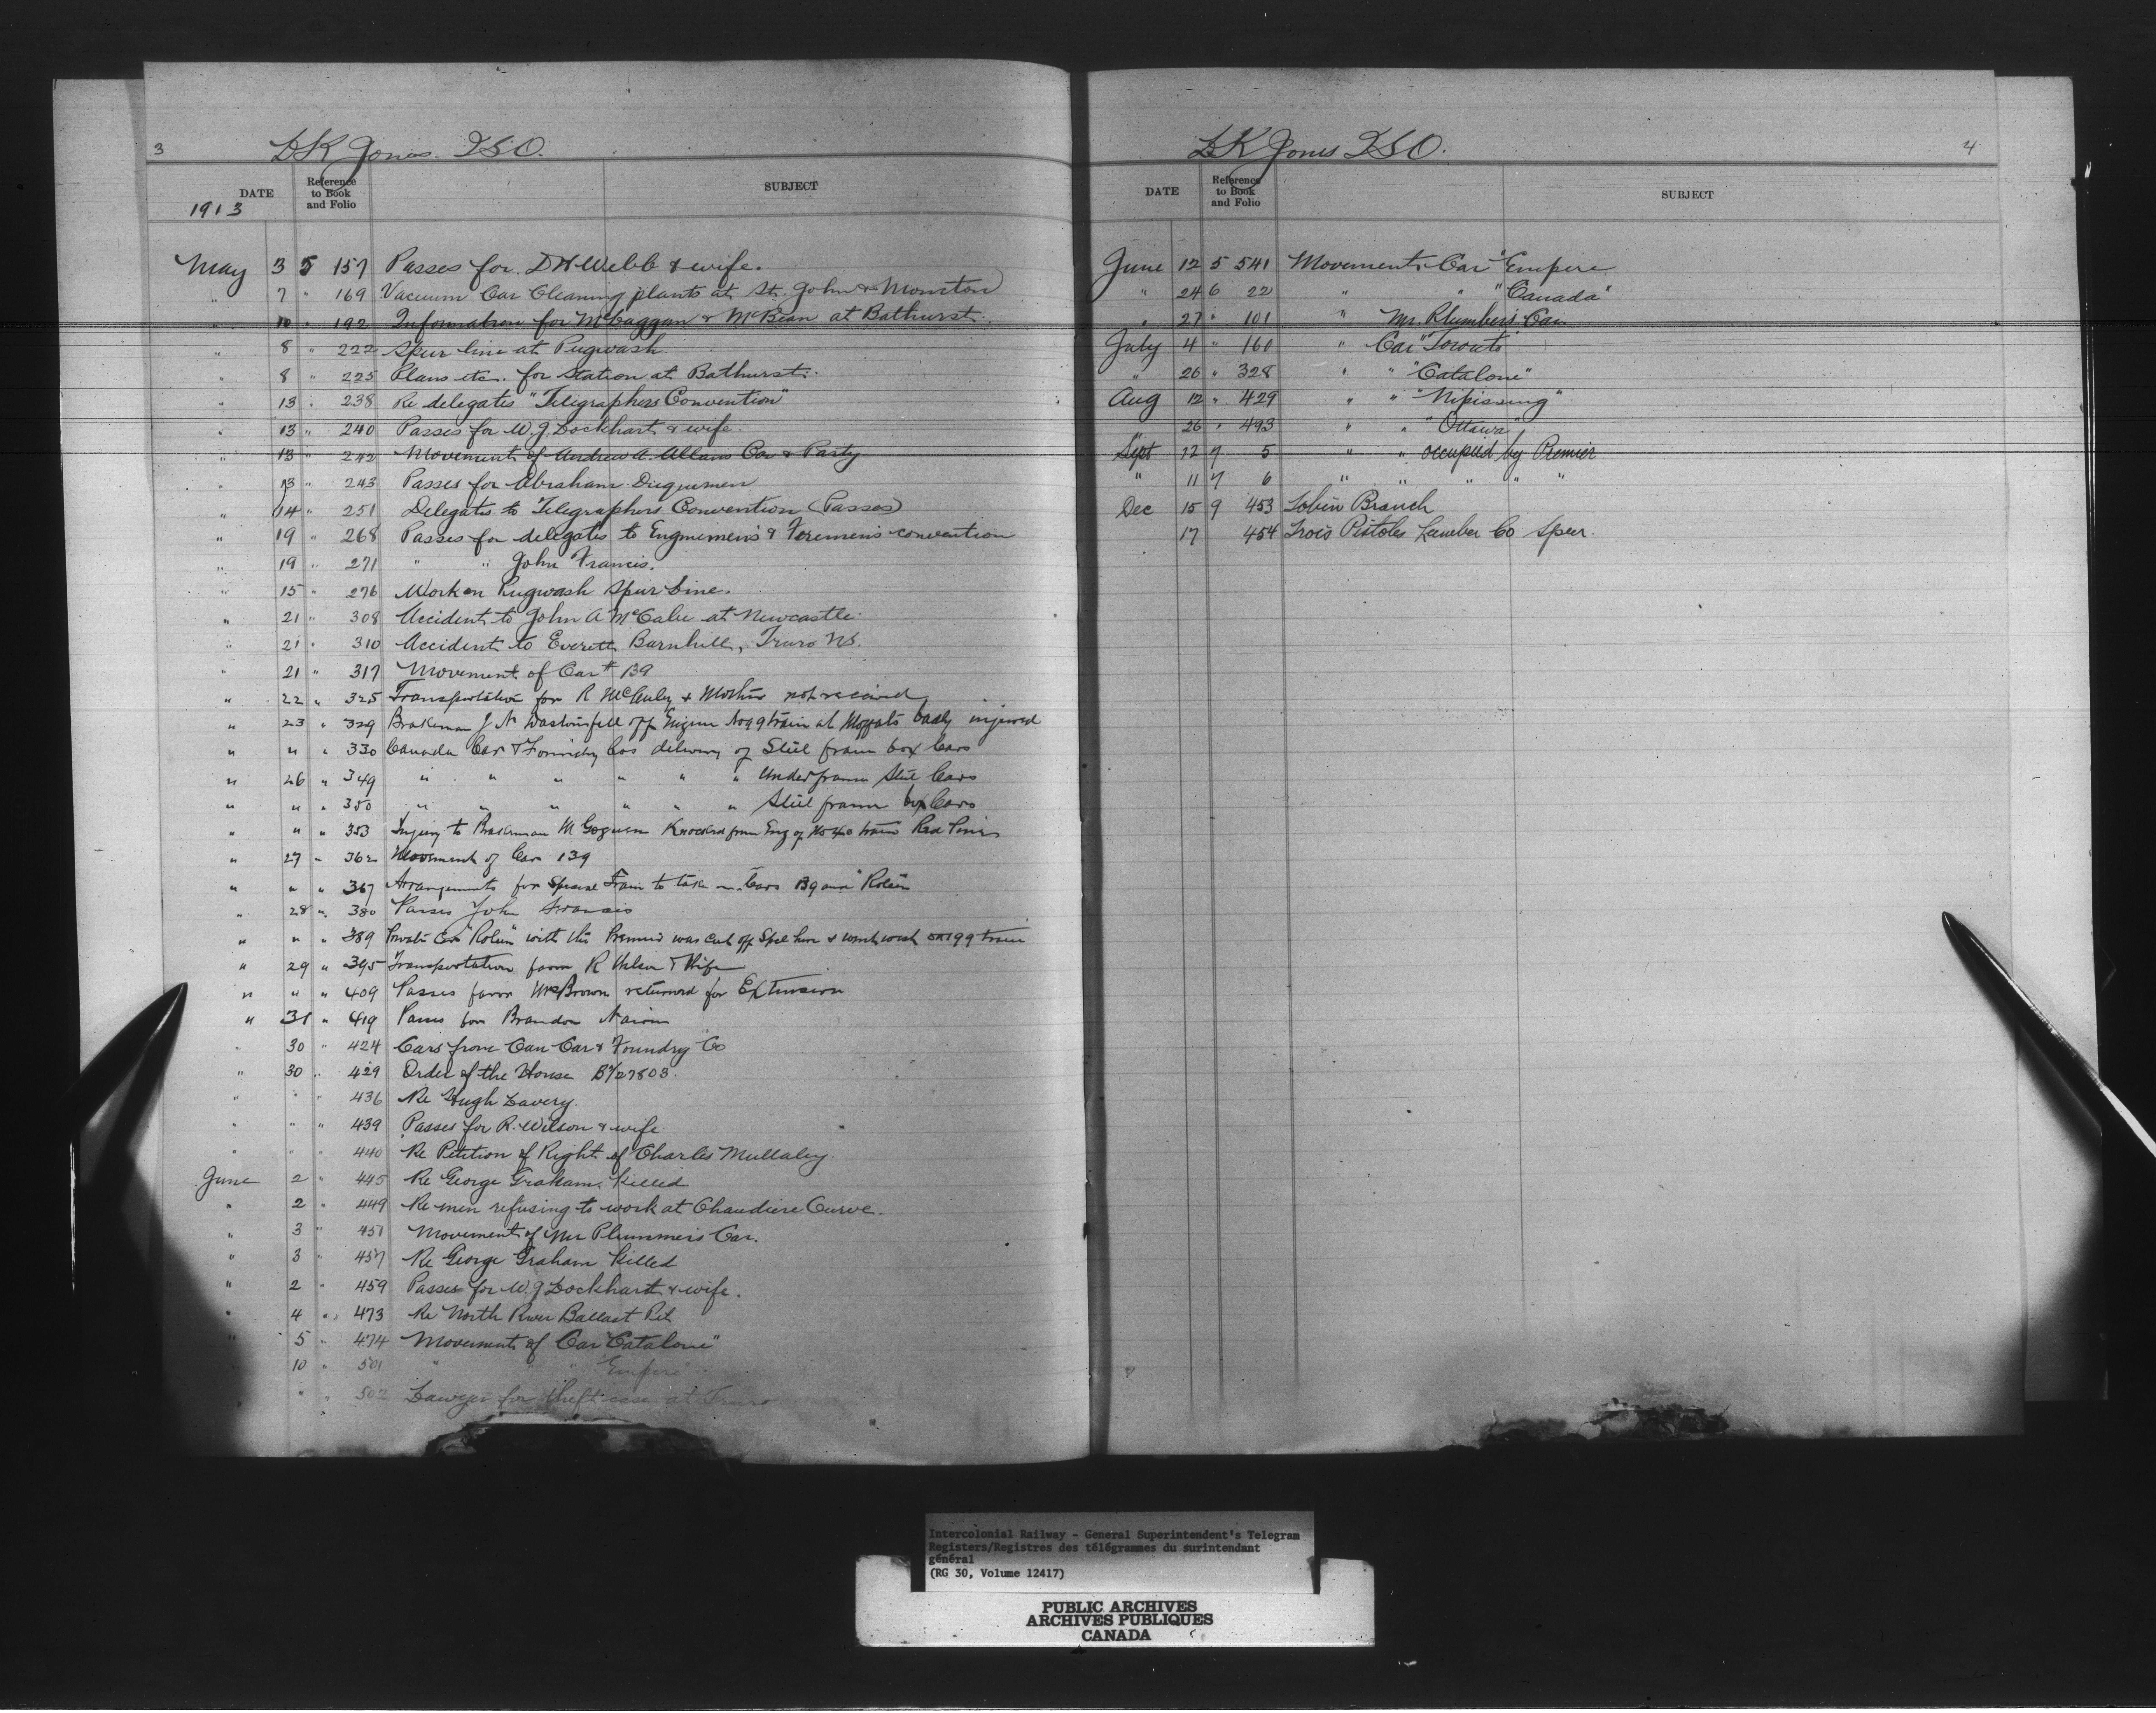 3
L K Jones. I S O.
DATE Reference to Book and Folio SUBJECT
1913
May 3 5 157 Passes for D H Webb & wife.
" 7 " 169 Vacuum Car Cleaning plants at St. John & Moncton
" 10 " 192 Information for McCaggan & McBean at Bathurst.
" 8 " 222 Spur line at Pugwash
" 8 " 225 Plans etc. for station at Bathurst.
" 13 " 238 Re delegates "Telegraphers Convention"
" 13 " 240 Passes for W. J Lockhart & wife.
" 13 " 242 Movement of Andrew A. Allans Car & Party
" 13 " 243 Passes for Abraham
" 14 " 251 Delegates to Telegraphers Convention (Passes)
" 19 " 268 Passes for delegates to Enginemen's & Firemen's convention
" 19 " 271 " " John Francis.
" 15 " 276 Work on Pugwash Spur Line.
" 21 " 308 Accident to John A McCabe at Newcastle
" 21 " 310 Accident to Everett Barnhill, Truro NS.
" 21 " 317 Movement of Car # 139
" 22 " 325 Transportation for R McAuley & Mother not received
" 23 " 329 Brakeman J N fell off Engine No 99 train at Moffats badly injured
" " " 330 Canada Car & Foundry Cos delivery of Steel frame box Cars
" 26 " 349 " " " " " " Underframe Steel Cars
" " " 350 " " " " " " Steel frame box Cars
" " " 353 Injury to Brakeman M Goguen Knocked from Eng of No 40 train Red Pines
" 27 " 362 Movement of Car 139
" " " 367 Arrangements for Special Train to take on Cars 139 and "Robin"
" 28 " 380 Passes John Francis
" " " 389 Private Car "Robin" with the Premier was cut off Spcl here & went west on 199 train
" 29 " 395 Transportation favor R Wilson & Wife
" " " 409 Passes favor Mrs Brown returned for Extension
" 31 " 419 Passes for Brandon
" 30 " 424 Cars from Can Car & Foundry Co
" 30 " 429 Order of the House B/27803.
" " " 436 Re Hugh Lavery.
" " " 439 Passes for R. Wilson & wife
" " " 440 Re Petition of Right of Charles Mullaley.
June 2 " 445 Re George Graham Killed
" 2 " 449 Re men refusing to work at Chaudiere Curve.
" 3 " 451 Movement of Mr Plummers Car.
" 3 " 457 Re George Graham Killed
" 2 " 459 Passes for W. J Lockhart & wife.
" 4 " 473 Re North River Ballast Pit
" 5 " 474 Movement of Car "Catalone"
10 " 501 " " "Empire"
" " 502 Lawyer for theft case at Truro
L K Jones I S O.
4
DATE Reference to Book and Folio SUBJECT
June 12 5 541 Movements Car "Empire
" 24 6 22 " " "Canada"
" 27 " 101 " Mr. Plumbers Car
July 4 " 160 " Car "Toronto"
" 26 " 328 " " "Catalone"
Aug 12 " 429 " " "Nipissing"
" 26 " 493 " " "Ottawa"
Sept 12 7 5 " " occupied by Premier
" 11 7 6 " " " " "
Dec 15 9 453 Tobin Branch
17 454 Trois Pistoles Lumber Co Spur.
Intercolonial Railway - General Superintendent's Telegram
Registers/Registres des télégrammes du surintendant
général
(RG 30, Volume 12417)
PUBLIC ARCHIVES
ARCHIVES PUBLIQUES
CANADA